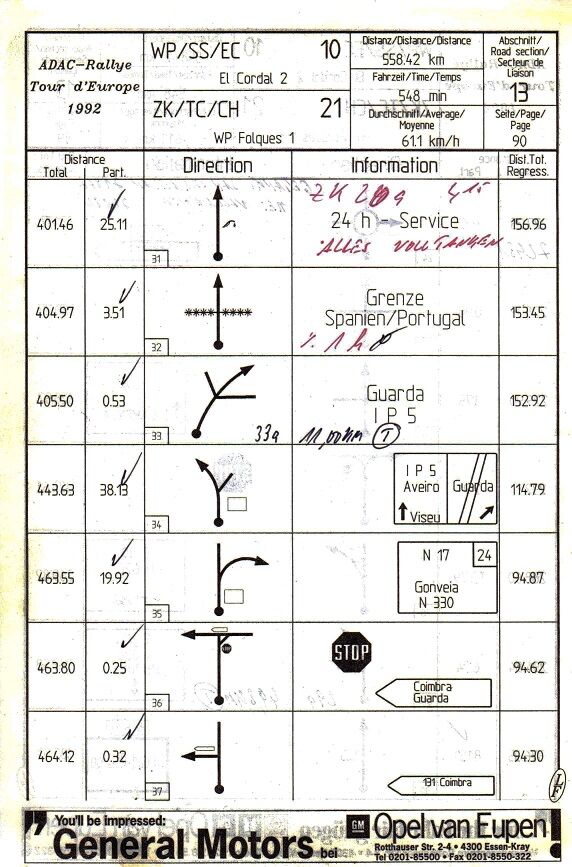 ADAC-Rallye
Tour d'Europe
1992
WP/SS/EC 10
El Cordal 2
ZK/TC/CH 21
WP Folques 1
Distanz/Distance/Distance
558.42 km
Fahrzeit/Time/Temps
548 min
Durchschnitt/Average/
Moyenne
61.1 km/h
Abschnitt/
Road section/
Secteur de
Liaison
13
Seite/Page/
Page
90
Distance
Total Part.
Direction
Information
Dist.Tot.
Regress.
401.46 25.11
31
ZK 20a 415
24 h - Service
ALLES VOLLTANKEN
156.96
404.97 3.51
32
Grenze
Spanien/Portugal
1 h
153.45
405.50 0.53
33 33a
Guarda
IP5
11,00 km T
152.92
443.63 38.13
34
IP5
Aveiro Guarda
Viseu
114.79
463.55 19.92
35
N 17 24
Gonveia
N 330
94.87
463.80 0.25
STOP
36
STOP
Coimbra
Guarda
94.62
464.12 0.32
37
131 Coimbra
94.30
You'll be impressed:
General Motors bei
GM Opel van Eupen!
Rotthauser Str. 2-4 • 4300 Essen-Kray
Tel 0201-85500 • Fax 0201-8550-322